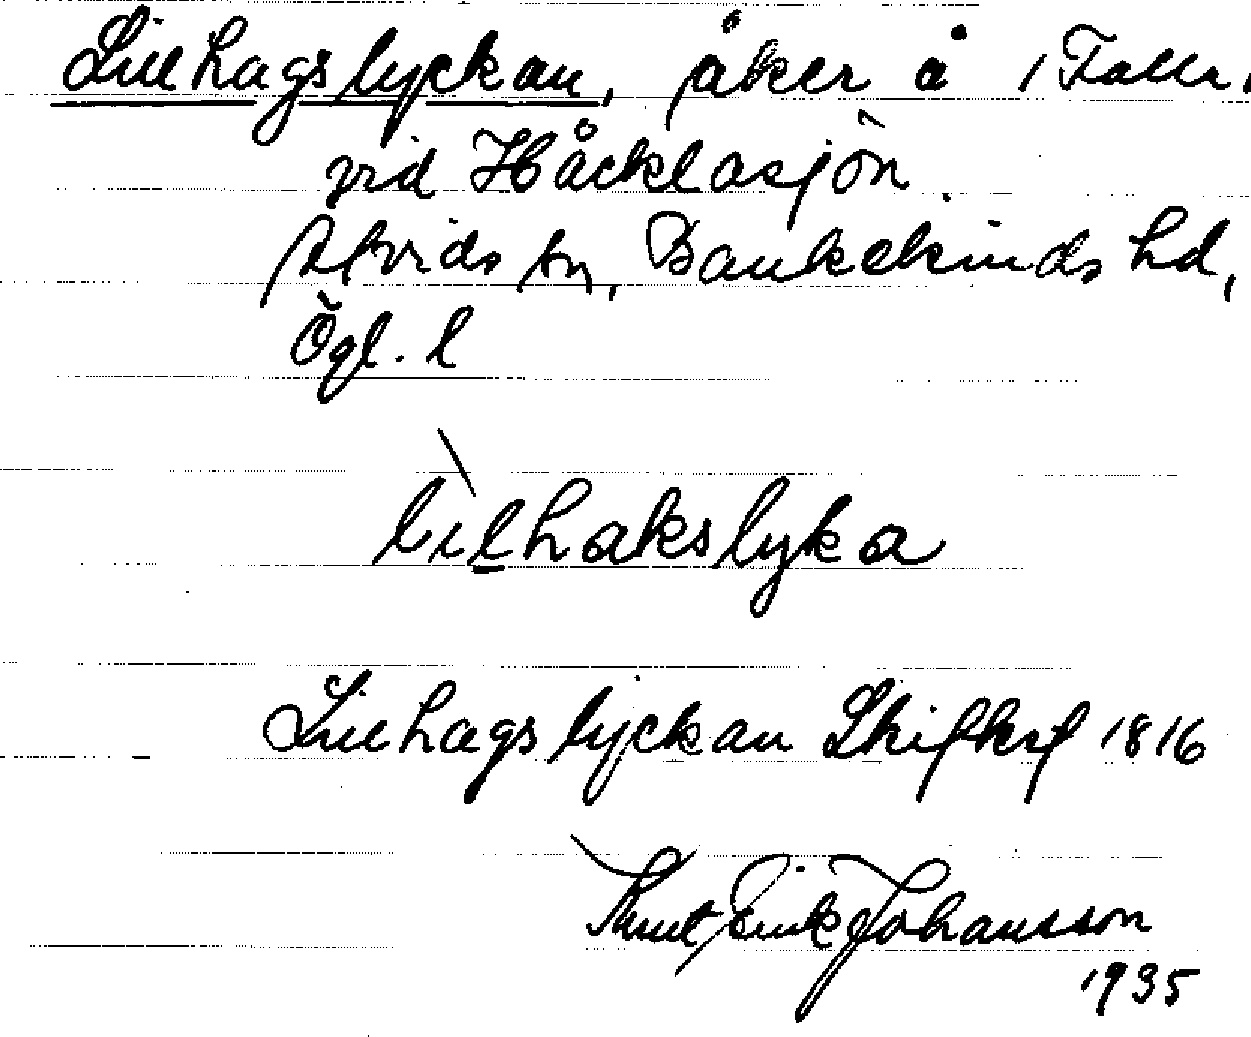 Lillhagslyckan, åker å 1 Falla,
vid Häcklasjön
Atvids sn, Bankekinds hd,
Ögl. l
lìlhakslyka
Lillhagslyckan Skifksf 1816
Knut Erik Johansson
1935